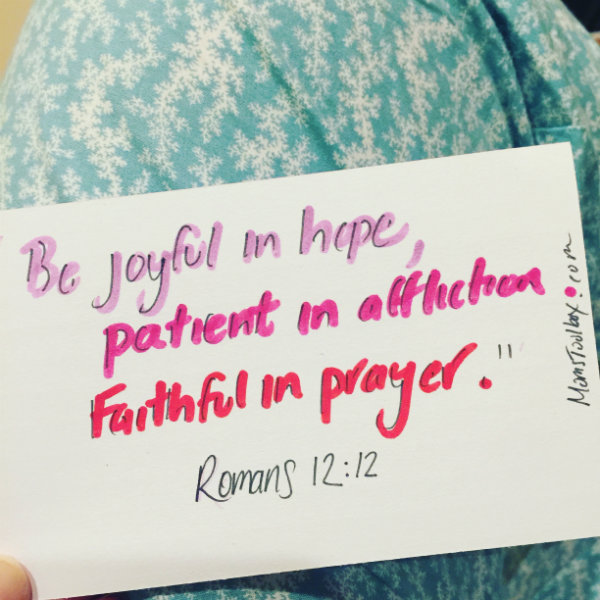 Be joyful in hope,
patient in affliction
Faithful in prayer."
Romans 12:12
MomsToolbox.com